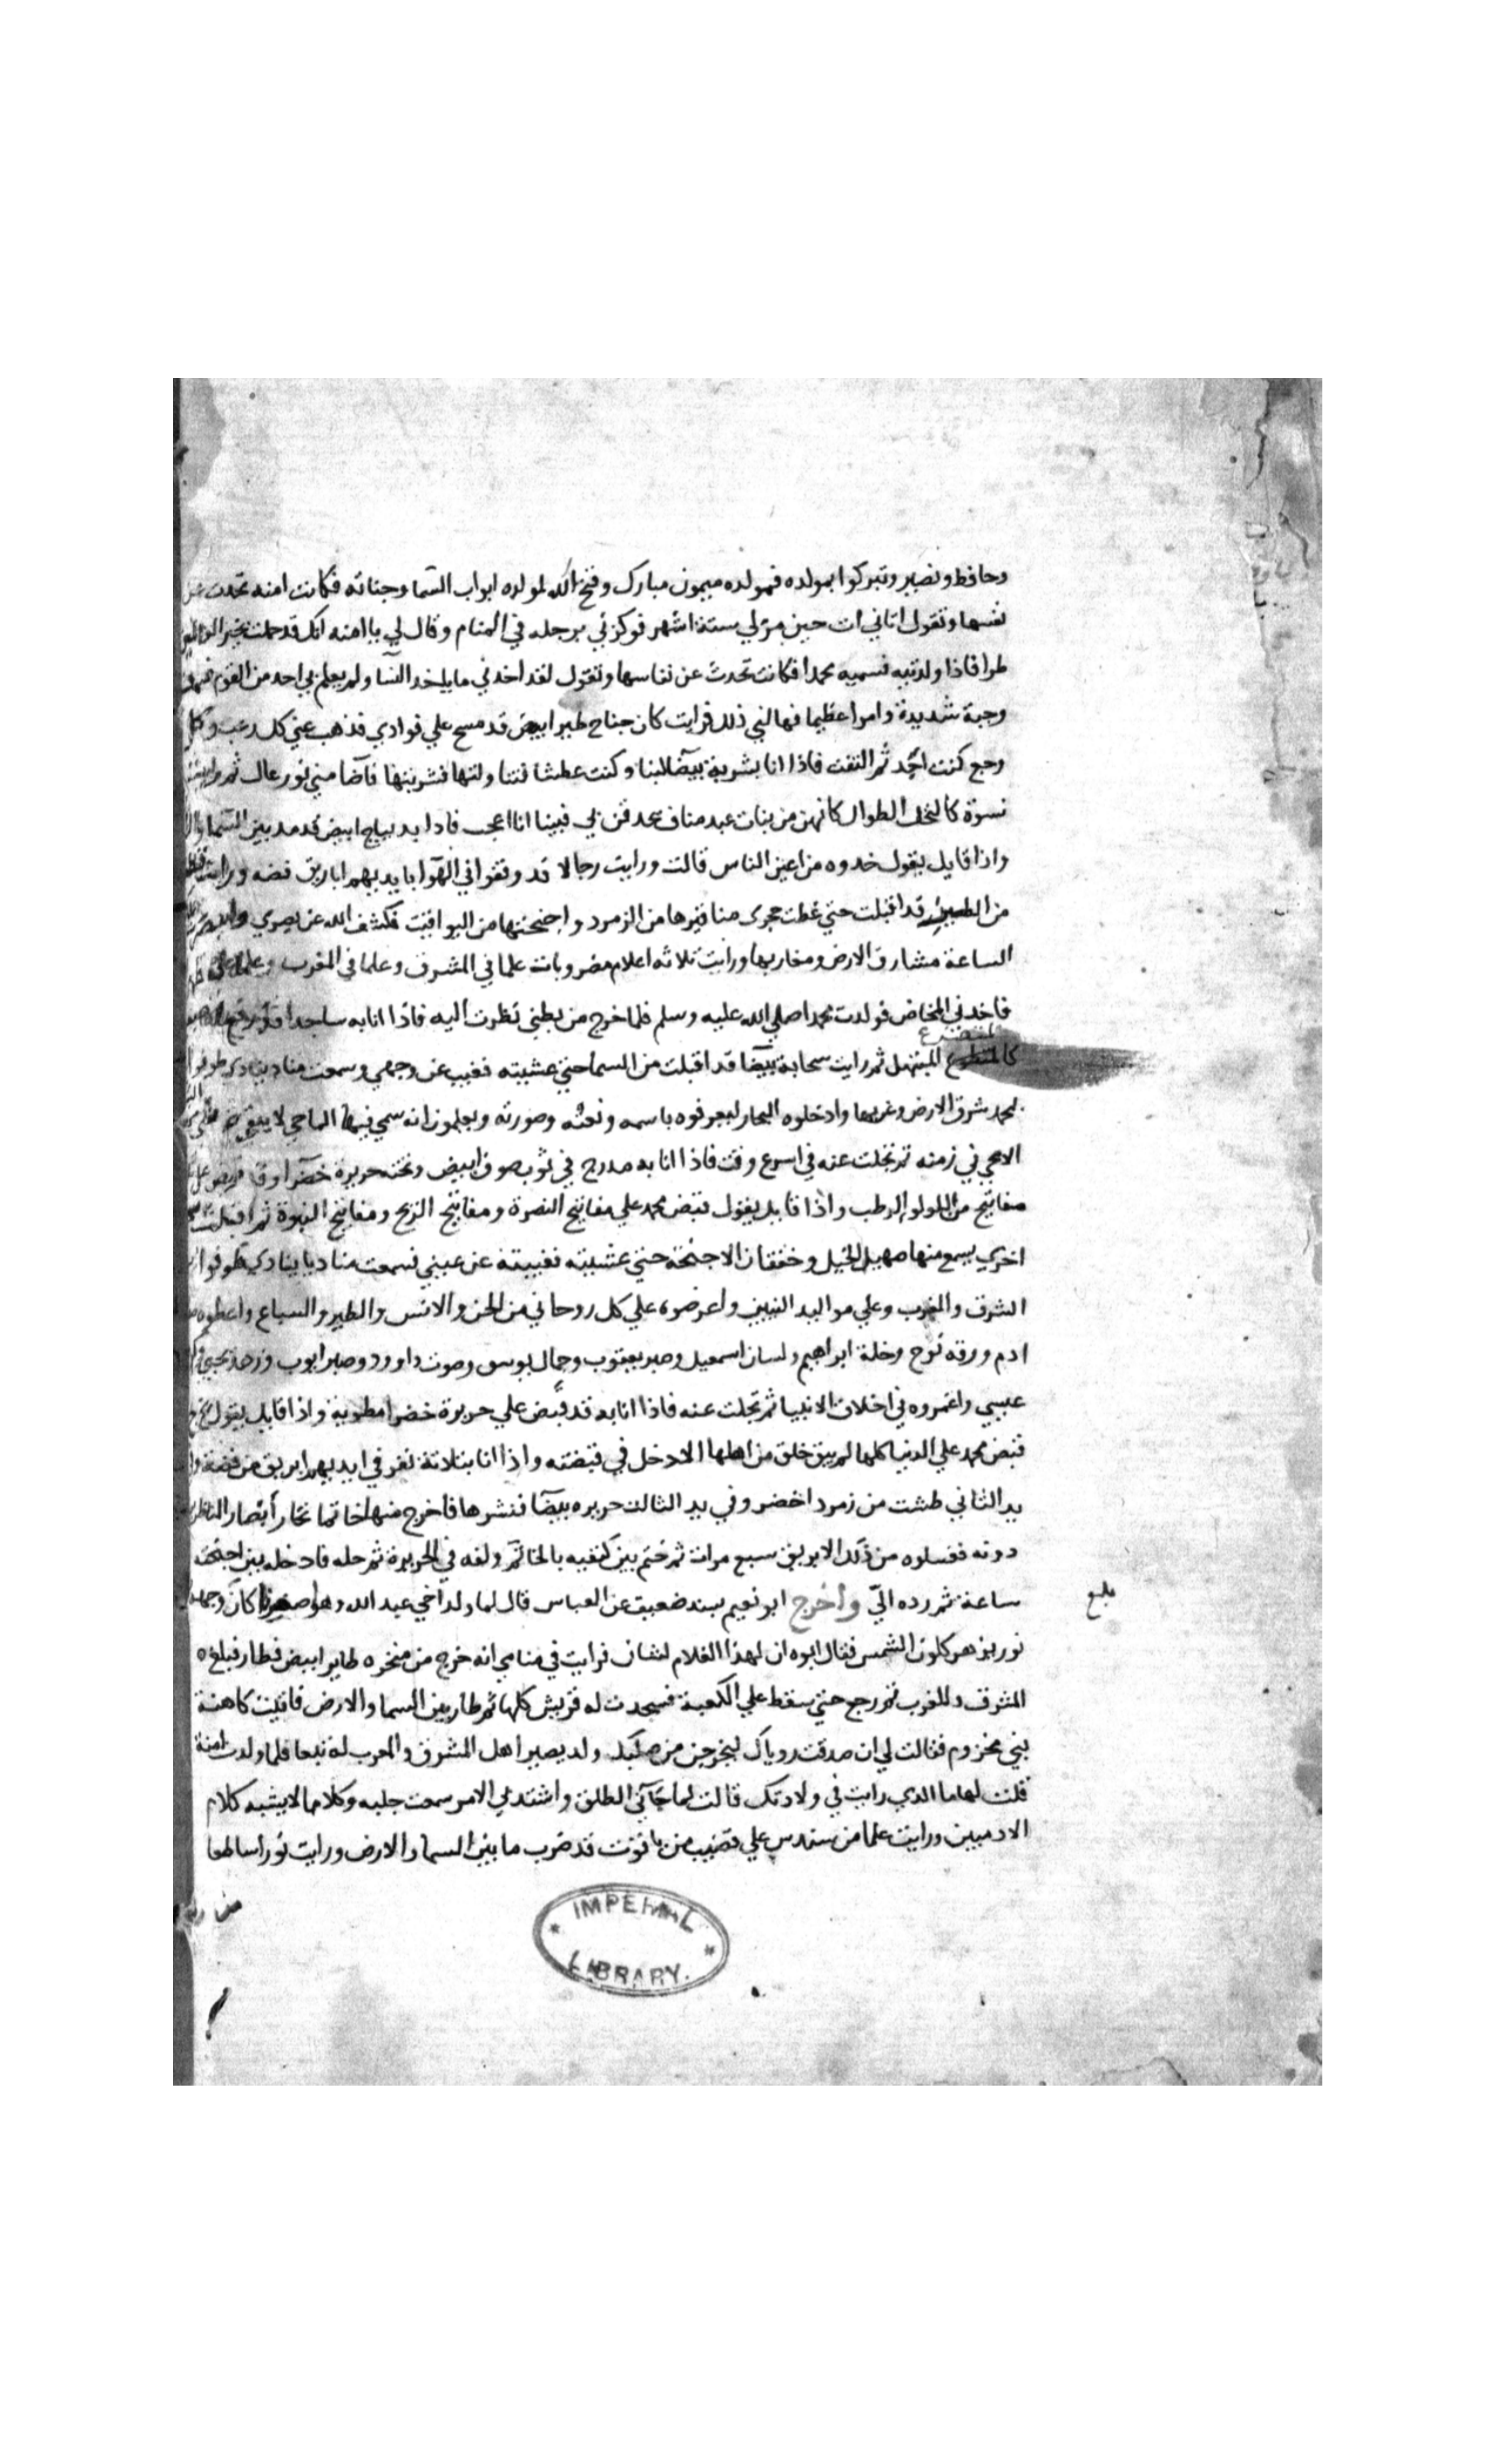 وحافظ ونصير وتبركوا بمولده فمولده ميمون مبارك وفتح الله لمولده ابواب السما وجناته فكانت امنه تحدث عن
نفسها وتقول اتاني ات حين مر لي ستة اشهر فوكزني برجله في المنام وقال لي يا امنه انك قد حملت بخير العالمين
طرا فاذا ولدتيه فسميه محمدا فكانت تحدث عن نفاسها وتقول لقد اخذني ما ياخذ النسا ولم يعلم بي احد من القوم فسمعت
وجبة شديدة وامرا عظيما فهالني ذلك فرايت كان جناح طير ابيض قد مسح علي فوادي فذهب عني كل رعب وكل
وجع كنت اجد ثم التفت فاذا انا بشربة بيضا لبنا وكنت عطشا فتناولتها فشربتها فاضا مني نور عال ثم رايت
نسوة كالنخل الطوال كانهن من بنات عبد مناف يحدقن بي فبينا انا اعجب فاذا بديباج ابيض قد مد بين السما
واذا قايل يقول خدوه من اعين الناس قالت ورايت رجالا قد وقفوا في الهوا بايديهم اباريق فضه ورايت قطعة
من الطير قد اقبلت حتي غطت حجري مناقيرها من الزمرد واجنحتها من اليواقيت فكشف الله عن بصري وابصرت
الساعة مشارق الارض ومغاربها ورايت ثلاثه اعلام مضروبات علما في المشرق وعلما في المغرب وعلما علي
فاخذني المخاض فولدت محمدا صلي الله عليه وسلم فلما خرج من بطني نظرت اليه فاذا انا به ساجدا قد رفع
المتضرع
كالمتضرع المبتهل ثم رايت سحابة بيضا قد اقبلت من السما حتي غشيته فغيب عن وجهي وسمعت مناديا ينادي طوفوا
بمحمد شرق الارض وغربها وادخلوه البحار ليعرفوه باسمه ونعته وصورته ويعلمون انه سمي فيها الماحي لا يبقي
الا محي في زمنه ثم تجلت عنه في اسرع وقت فاذا انا به مدرج في ثوب صوف ابيض وتحته حريرة خضرا وقد قبض علي
مفاتيح من اللولو الرطب واذا قايل يقول قبض محمد علي مفاتيح النصرة ومفاتيح الريح ومفاتيح النبوة ثم اقبلت
اخري يسمع منها صهيل الخيل وخفقان الاجنحة حتي غشيته فغيبته عن عيني فسمعت مناديا ينادي طوفوا
الشرق والمغرب وعلي مواليد النبيين واعرضوه علي كل روحاني من الجن والانس والطير والسباع واعطوه
ادم ورقه نوح وخلة ابراهيم ولسان اسمعيل وصبر يعقوب وجمال يوسف وصوت داوود وصبر ايوب وزهد يحيي
عيسي واغمروه في اخلاق الانبيا ثم تجلت عنه فاذا انا به قد قبض علي حريرة خضرا مطوية واذا قايل يقول بخ بخ
قبض محمد علي الدنيا كلها لم يبق خلق من اهلها الا دخل في قبضته واذا انا بثلاثة نفر في ايديهم ابريق من فضة
يد الثاني طشت من زمرد اخضر وفي يد الثالث حريره بيضا فنشرها فاخرج منها خاتما تحار ابصار الناظرين
دونه فغسلوه من ذلك الابريق سبع مرات ثم ختم بين كتفيه بالخاتم ولفه في الحريرة ثم حمله فادخله بين اجنحته
ساعة ثم رده الي واخرج ابو نعيم بسند ضعيف عن العباس قال لما ولد اخي عبد الله وهو اصغرنا كان وجهه
بلغ
نور يزهر كلون الشمس فقال ابوه ان لهذا الغلام لشان فرايت في منامي انه خرج من منخره طاير ابيض فطار فبلغ
المشرق والمغرب ثم رجع حتي سقط علي الكعبة فسجدت له قريش كلها ثم طار بين السما والارض فاتيت كاهنة
بني مخزوم فقالت لي ان صدقت روياك ليخرجن من صلبك ولد يصير اهل المشرق والمغرب له تبعا فلما ولدت امنة
قلت لها ما الذي رايت في ولادتك قالت لما جآني الطلق واشتد بي الامر سمعت جلبه وكلاما لا يشبه كلام
الادميين ورايت علما من سندس علي قضيب من ياقوت قد ضرب ما بين السما والارض ورايت نورا ساطعا
من
IMPERIAL LIBRARY.